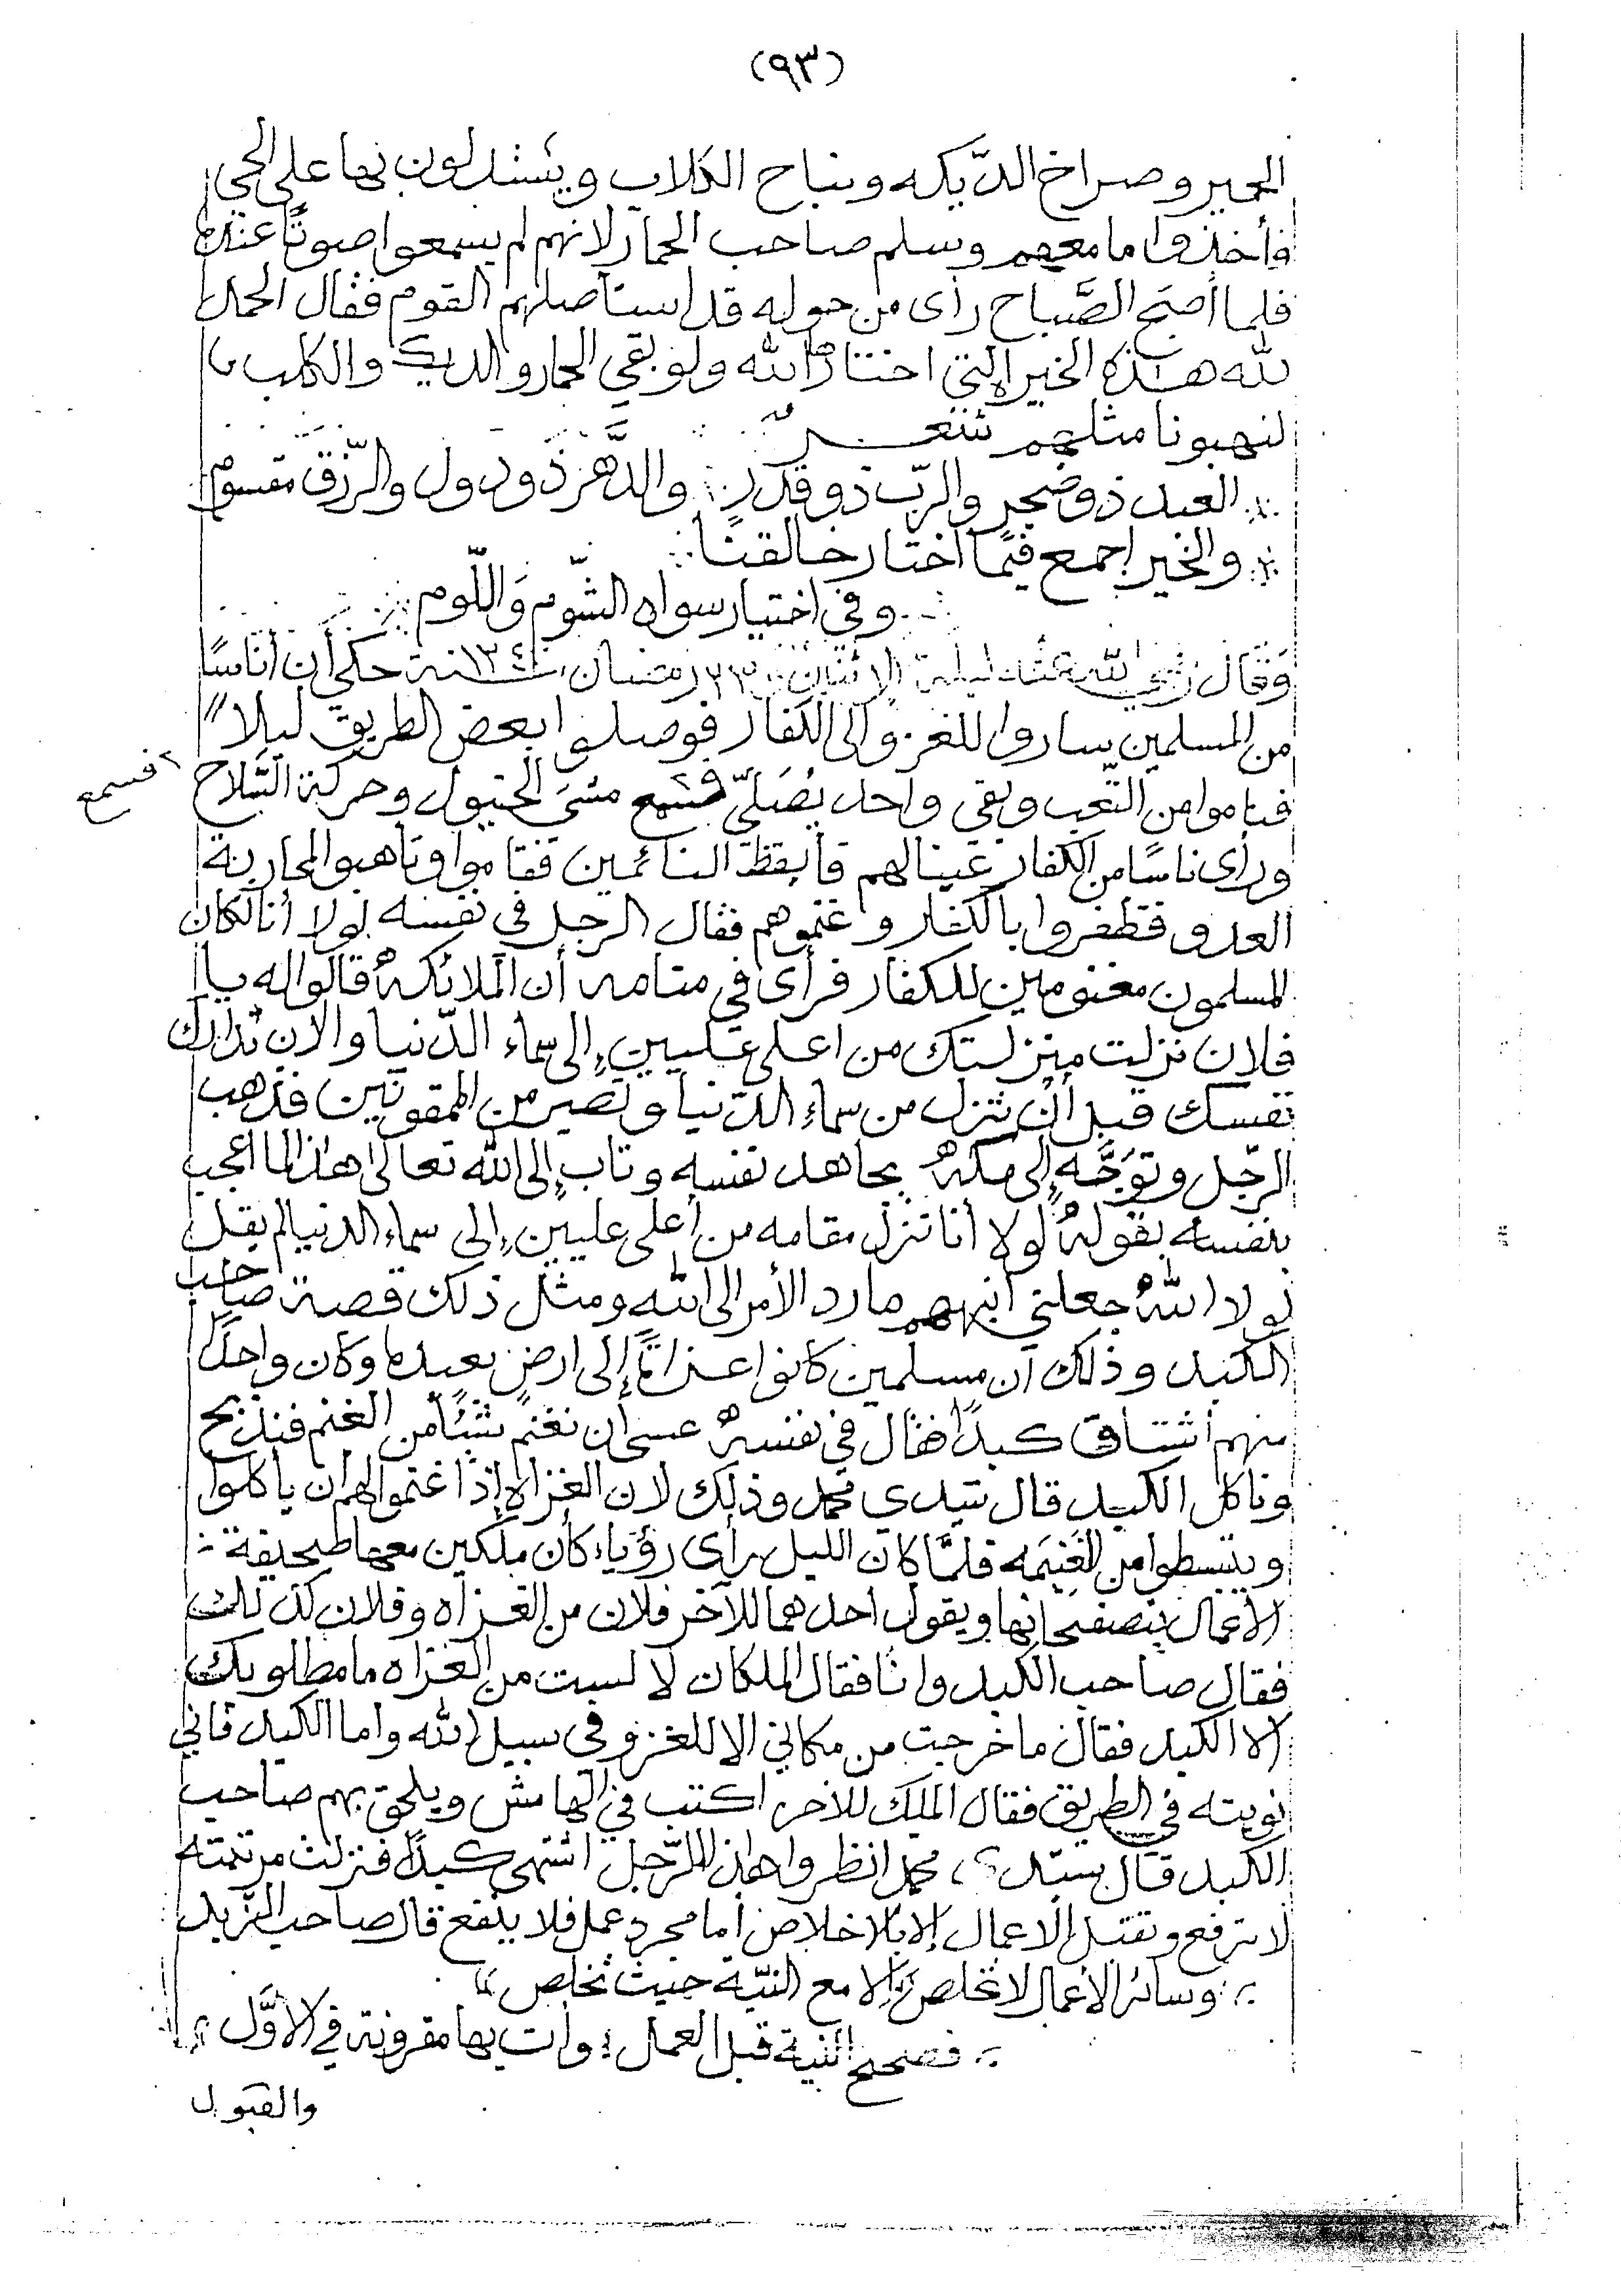 (٩٣)
الحمير وصراخ الدّيكه ونباح الكلاب ويستدلون بها على الحي
فأخذوا ما معهم وسلم صاحب الحمار لانهم لم يسمعوا صوتًا عنده
فلما أصبح الصَّباح رأى من حوله قد استأصلهم القوم فقال الحمد
لله هذه الخيرة التي اختارها الله ولو بقي الحمار والديك والكلب
لنهبونا مثلهم شعـــر
العبد ذو ضجر والربّ ذو قدر والدَّهر ذو دول والرّزق مقسوم
والخير اجمع فيما اختار خالقنا
وفي اختيار سواه الشّوم وَاللّوم
وَقال رضي الله عنه ليلة الإثنين ٢٣ رمضان سنة ١٣٤١ حكي أن أناسًا
من المسلمين ساروا للغزو الى الكفار فوصلوا بعض الطريق ليلاً
فناموا من التّعب وبقي واحد يُصَلّي فسمع مشيَ الخيول وحركة السِّلاح
فسمع
ورأى ناسًا من الكفار عينا لهم فأيقظ النائمين فقاموا وتأهبوا لمحاربة
العدو فظفروا بالكفار وغنموهم فقال الرجل في نفسه لولا أنا لكان
المسلمون مغنومين للكفار فرأى في منامه أن الملائكة قالوا له يا
فلان نزلت منزلتك من اعلى عليين إلى سماء الدّنيا والان تدارك
نفسك قبل أن تنزل من سماء الدّنيا وتصير من الممقوتين فذهب
الرّجل وتوَجَّه إلى مكة يجاهد نفسه وتاب إلى الله تعالى هذا لما اعجب
بنفسه بقوله لولا أنا تنزل مقامه من أعلى عليين إلى سماء الدنيا لم يقل
لولا الله جعلني أنبههم ما رد الأمر الى الله ومثل ذلك قصة صاحب
الكبد وذلك أن مسلمين كانوا غزاة إلى ارض بعيدة وكان واحد
منهم اشتاق كبدًا فقال في نفسه عسى أن نغنم شيئًا من الغنم فنذبح
وناكل الكبد قال سيدي محمد وذلك لان الغزاه إذا غنموا لهم أن ياكلوا
ويتبسطوا من الغَنِيمه فلمّا كان الليل رأى رؤياء كأن ملكين معهما صحيفة
الأعمال يتصفحانها ويقول احدهما للآخر فلان من الغزاه وفلان كذلك
فقال صاحب الكبد وانا فقال الملكان لا لست من الغزاه ما مطلوبك
الا الكبد فقال ما خرجت من مكاني الا للغزو في سبيل الله واما الكبد فاني
نويته في الطريق فقال الملك للآخر اكتب في الهامش ويلحق بهم صاحب
الكبد قال سيّدي محمد انظروا هذا الرّجل اشتهى كبدًا فنزلت مرتبته
لا ترفع وتقبل الاعمال إلا بالاخلاص أما مجرد عمل فلا ينفع قال صاحب الزّبد
وسائر الأعمال لا تخلص إلا مع النيّة حيث تخلص
فصحح النية قبل العمل وات بها مقرونة في الأوَّل
والقبول